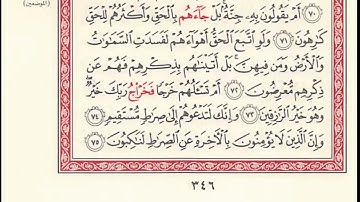 (المؤمنون)
٧٠ أَمْ يَقُولُونَ بِهِۦ جِنَّةٌۢ بَلْ جَآءَهُم بِٱلْحَقِّ وَأَكْثَرُهُمْ لِلْحَقِّ
كَٰرِهُونَ ٧١ وَلَوِ ٱتَّبَعَ ٱلْحَقُّ أَهْوَآءَهُمْ لَفَسَدَتِ ٱلسَّمَٰوَٰتُ
وَٱلْأَرْضُ وَمَن فِيهِنَّ بَلْ أَتَيْنَٰهُم بِذِكْرِهِمْ فَهُمْ عَن
ذِكْرِهِم مُّعْرِضُونَ ٧٢ أَمْ تَسْـَٔلُهُمْ خَرْجًا فَخَرَاجُ رَبِّكَ خَيْرٌ
وَهُوَ خَيْرُ ٱلرَّٰزِقِينَ ٧٣ وَإِنَّكَ لَتَدْعُوهُمْ إِلَىٰ صِرَٰطٍ مُّسْتَقِيمٍ ٧٤
وَإِنَّ ٱلَّذِينَ لَا يُؤْمِنُونَ بِٱلْأَخِرَةِ عَنِ ٱلصِّرَٰطِ لَنَٰكِبُونَ ٧٥
٣٤٦